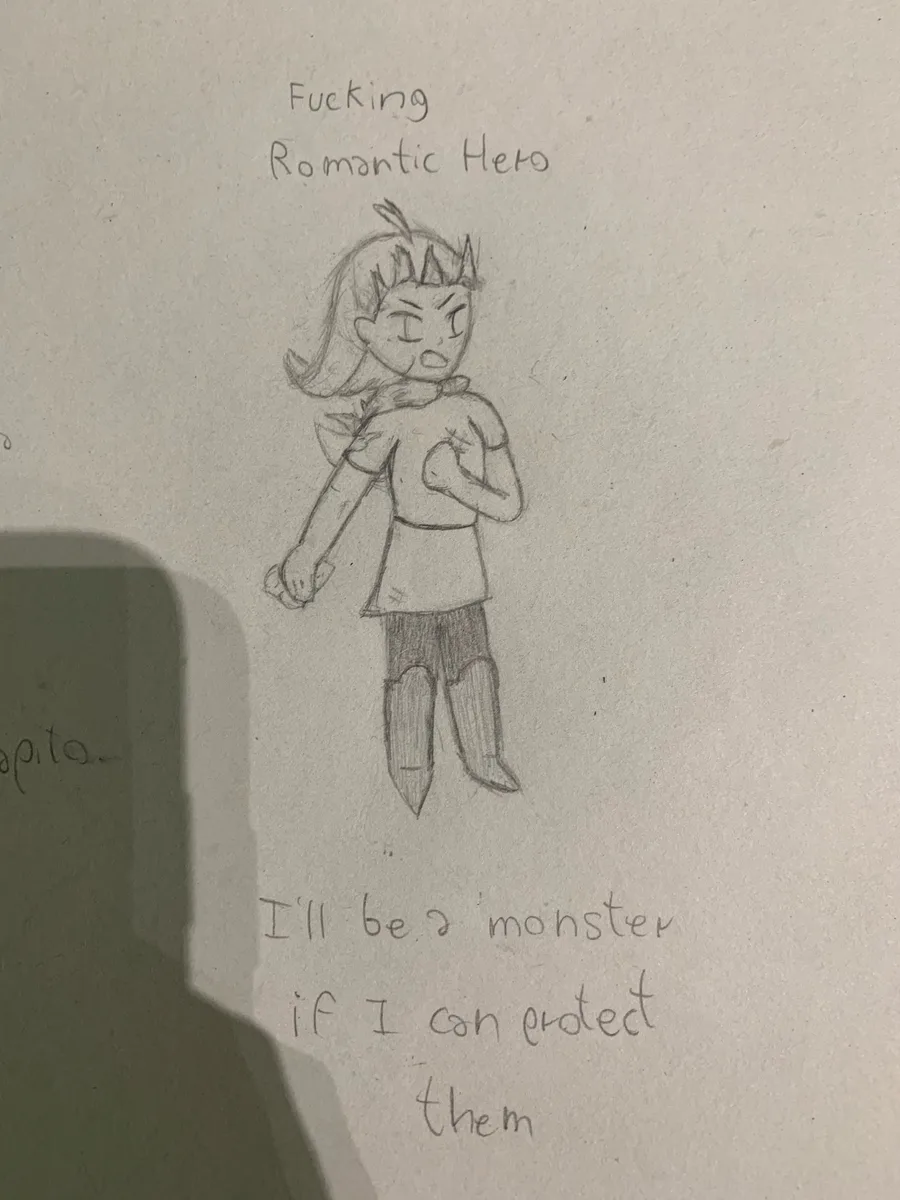 Fucking
Romantic Hero
I'll be a monster
if I can protect
them